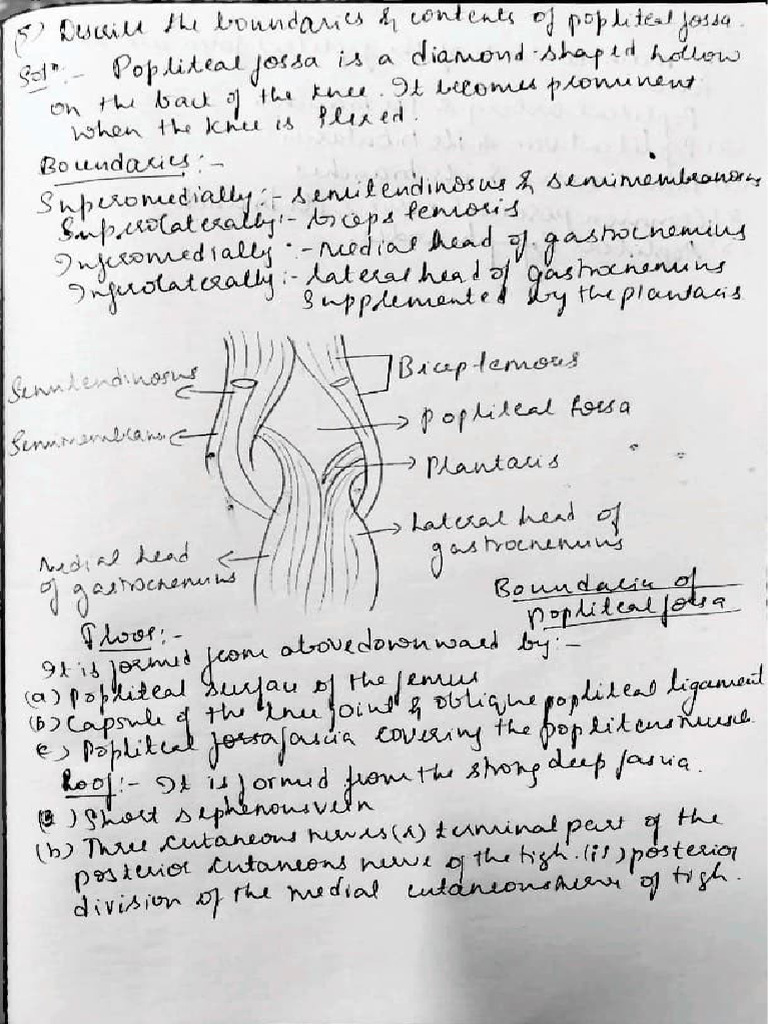 5) Describe the boundaries & contents of popliteal fossa.
Solⁿ:- Popliteal fossa is a diamond-shaped hollow
on the back of the knee. It becomes prominent
when the knee is flexed.
Boundaries:-
Superomedially:- semitendinosus & semimembranosus
Superolaterally:- biceps femoris
Inferomedially:- Medial head of gastrocnemius
Inferolaterally:- lateral head of gastrocnemius
Supplemented by the plantaris
Semitendinosus
Bicep femoris
Popliteal fossa
Semimembran
Plantaris
Lateral head of
gastrocnemius
Medial head
of gastrocnemius
Boundaries of
Popliteal fossa
Floor:-
It is formed from above downward by:-
(a) Popliteal surface of the femur
(b) Capsule of the knee joint & oblique popliteal ligament
(c) Popliteal fascia covering the popliteus muscle
Roof:- It is formed from the strong deep fascia.
(a) Short sephenous vein
(b) Three cutaneous nerves (i) terminal part of the
posterior cutaneous nerve of the tigh. (ii) posterior
division of the medial cutaneous nerve of tigh.